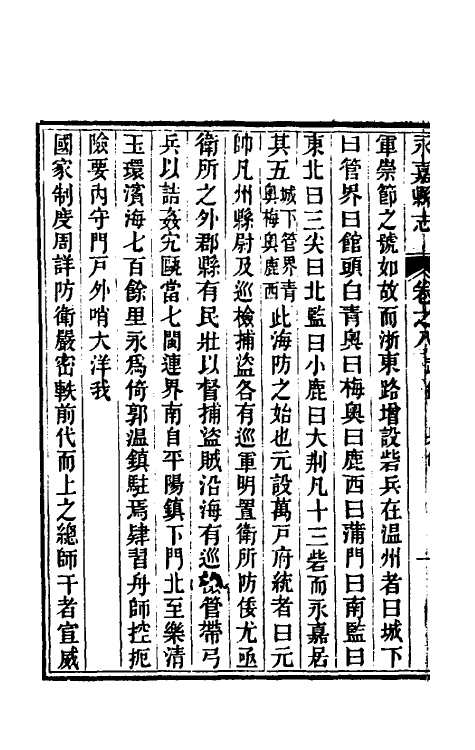 永嘉縣志 卷之八
軍崇節之號如故而浙東路增設砦兵在温州者曰城下
曰管界曰館頭曰青奥曰梅奥曰鹿西曰蒲門曰南監曰
東北曰三尖曰北監曰小鹿曰大荆凡十三砦而永嘉居
其五城下管界青奥梅奥鹿西此海防之始也元設萬戸府統者曰元
帥凡州縣尉及巡檢捕盜各有巡軍明置衛所防倭尤亟
衛所之外郡縣有民壯以督捕盜賊沿海有巡檢管帶弓
兵以詰姦宄甌當七閩連界南自平陽鎮下門北至樂清
玉環濱海七百餘里永為倚郭温鎮駐焉肄習舟師控扼
險要内守門戸外哨大洋我
國家制度周詳防衛嚴密軼前代而上之總師干者宣威